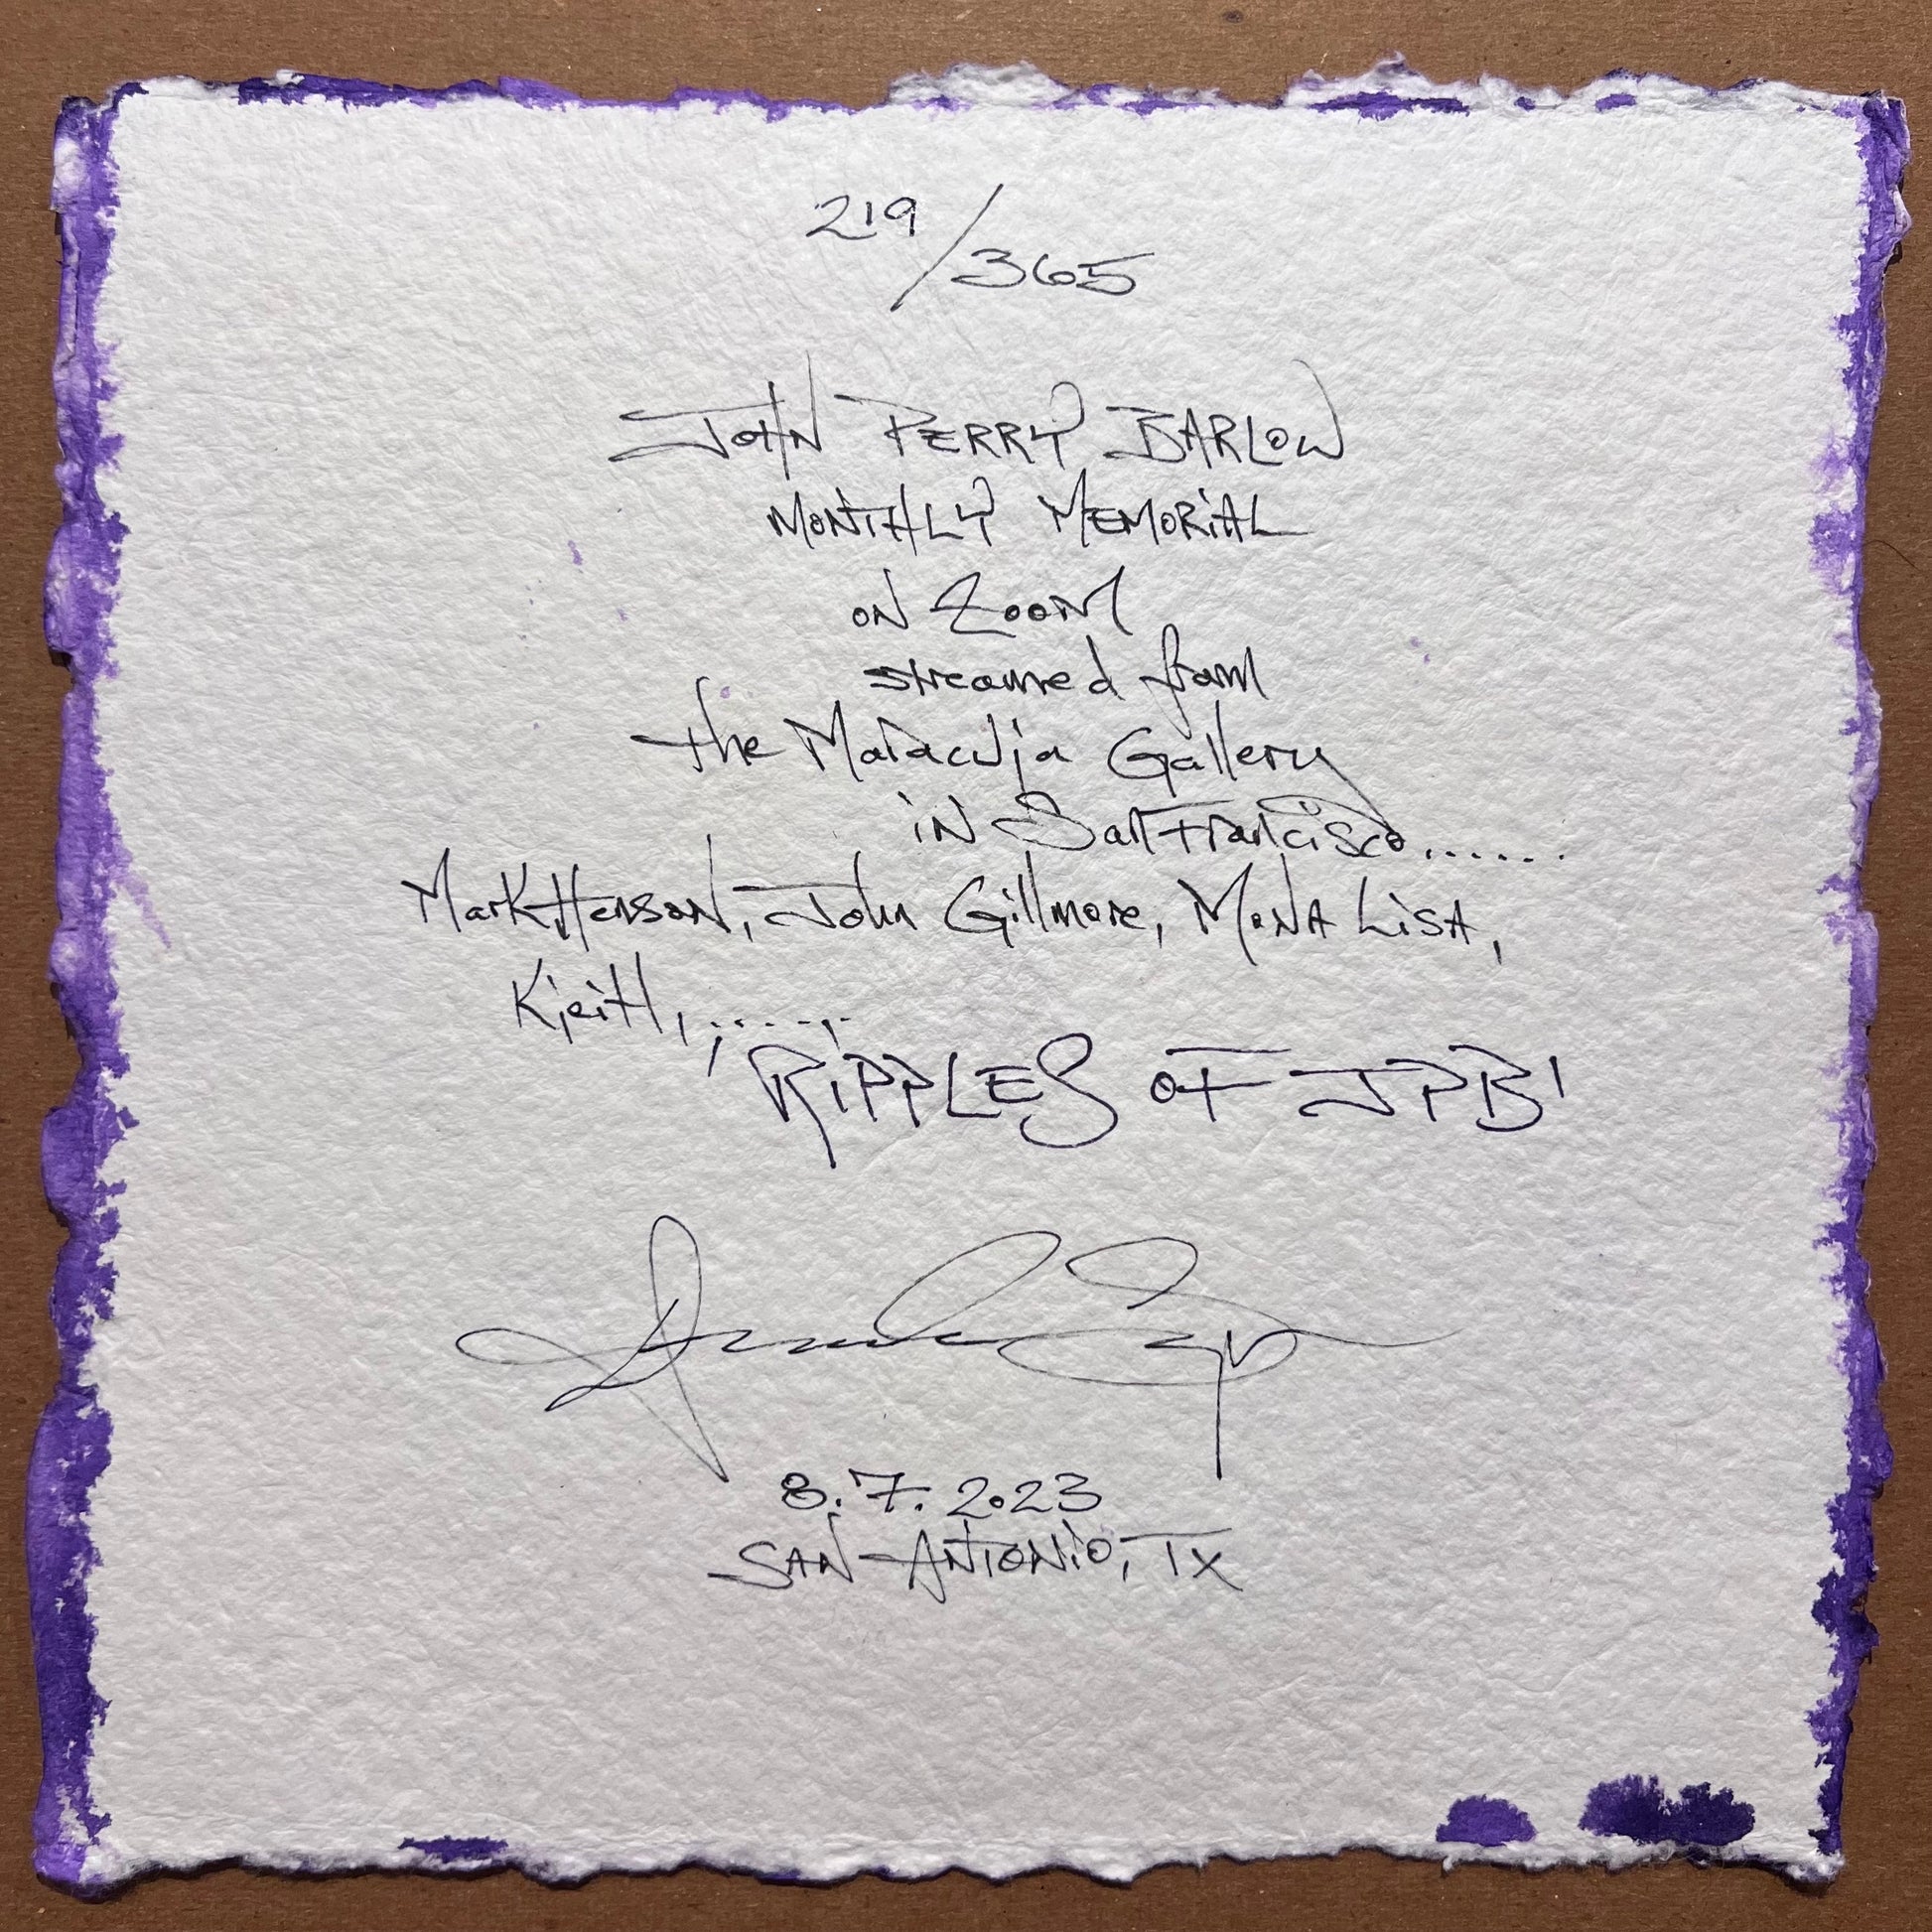 219/365
JOHN PERRY BARLOW
MONTHLY MEMORIAL
ON ZOOM
streamed from
the Maracuja Gallery
in San Francisco......
Mark Henson, John Gillmore, MONA LiSA,
Keith, ......
RiPPLES OF JPB!
8.7.2023
SAN ANTONiO, TX